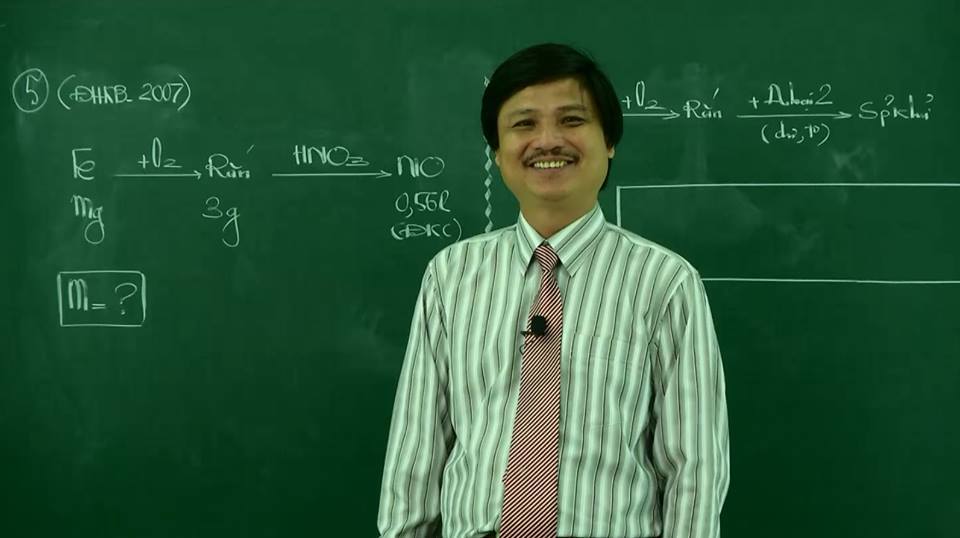 5 (ĐHKB-2007)
Fe +O2 Rắn HNO3 NO
mg 3g 0,56l
(ĐKC)
m = ?
+O2 Rắn +A loại 2 Sp'khử
(dư, to)